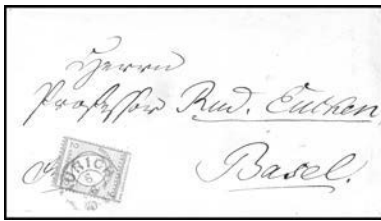 Herrn
Professor Rud. Eucken
Basel.
ZÜRICH